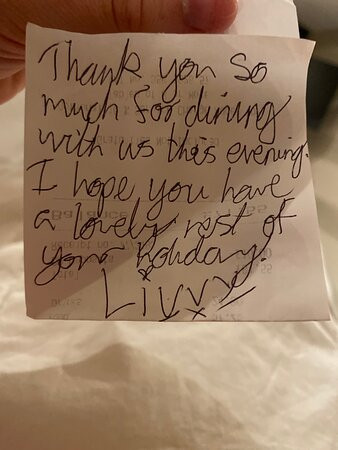 Thank you so
much for dining
with us this evening.
I hope you have
a lovely rest of
your holiday!
Livvy x